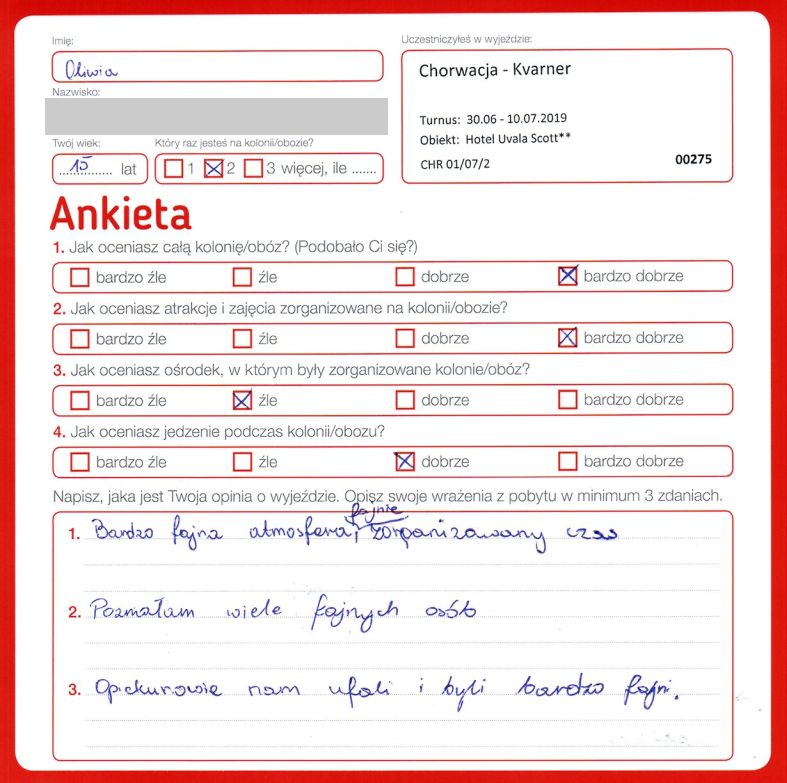 Imię:
Uczestniczyłeś w wyjeździe:
Oliwia
Chorwacja - Kvarner
Nazwisko:
Turnus: 30.06 - 10.07.2019
Obiekt: Hotel Uvala Scott**
Twój wiek:
Który raz jesteś na kolonii/obozie?
15 lat
1 2 3 więcej, ile .......
CHR 01/07/2
00275
Ankieta
1. Jak oceniasz całą kolonię/obóz? (Podobało Ci się?)
bardzo źle źle dobrze bardzo dobrze
2. Jak oceniasz atrakcje i zajęcia zorganizowane na kolonii/obozie?
bardzo źle źle dobrze bardzo dobrze
3. Jak oceniasz ośrodek, w którym były zorganizowane kolonie/obóz?
bardzo źle źle dobrze bardzo dobrze
4. Jak oceniasz jedzenie podczas kolonii/obozu?
bardzo źle źle dobrze bardzo dobrze
Napisz, jaka jest Twoja opinia o wyjeździe. Opisz swoje wrażenia z pobytu w minimum 3 zdaniach.
fajnie
1. Bardzo fajna atmosfera i zorganizowany czas
2. Poznałam wiele fajnych osób
3. Opiekunowie nam ufali i byli bardzo fajni.